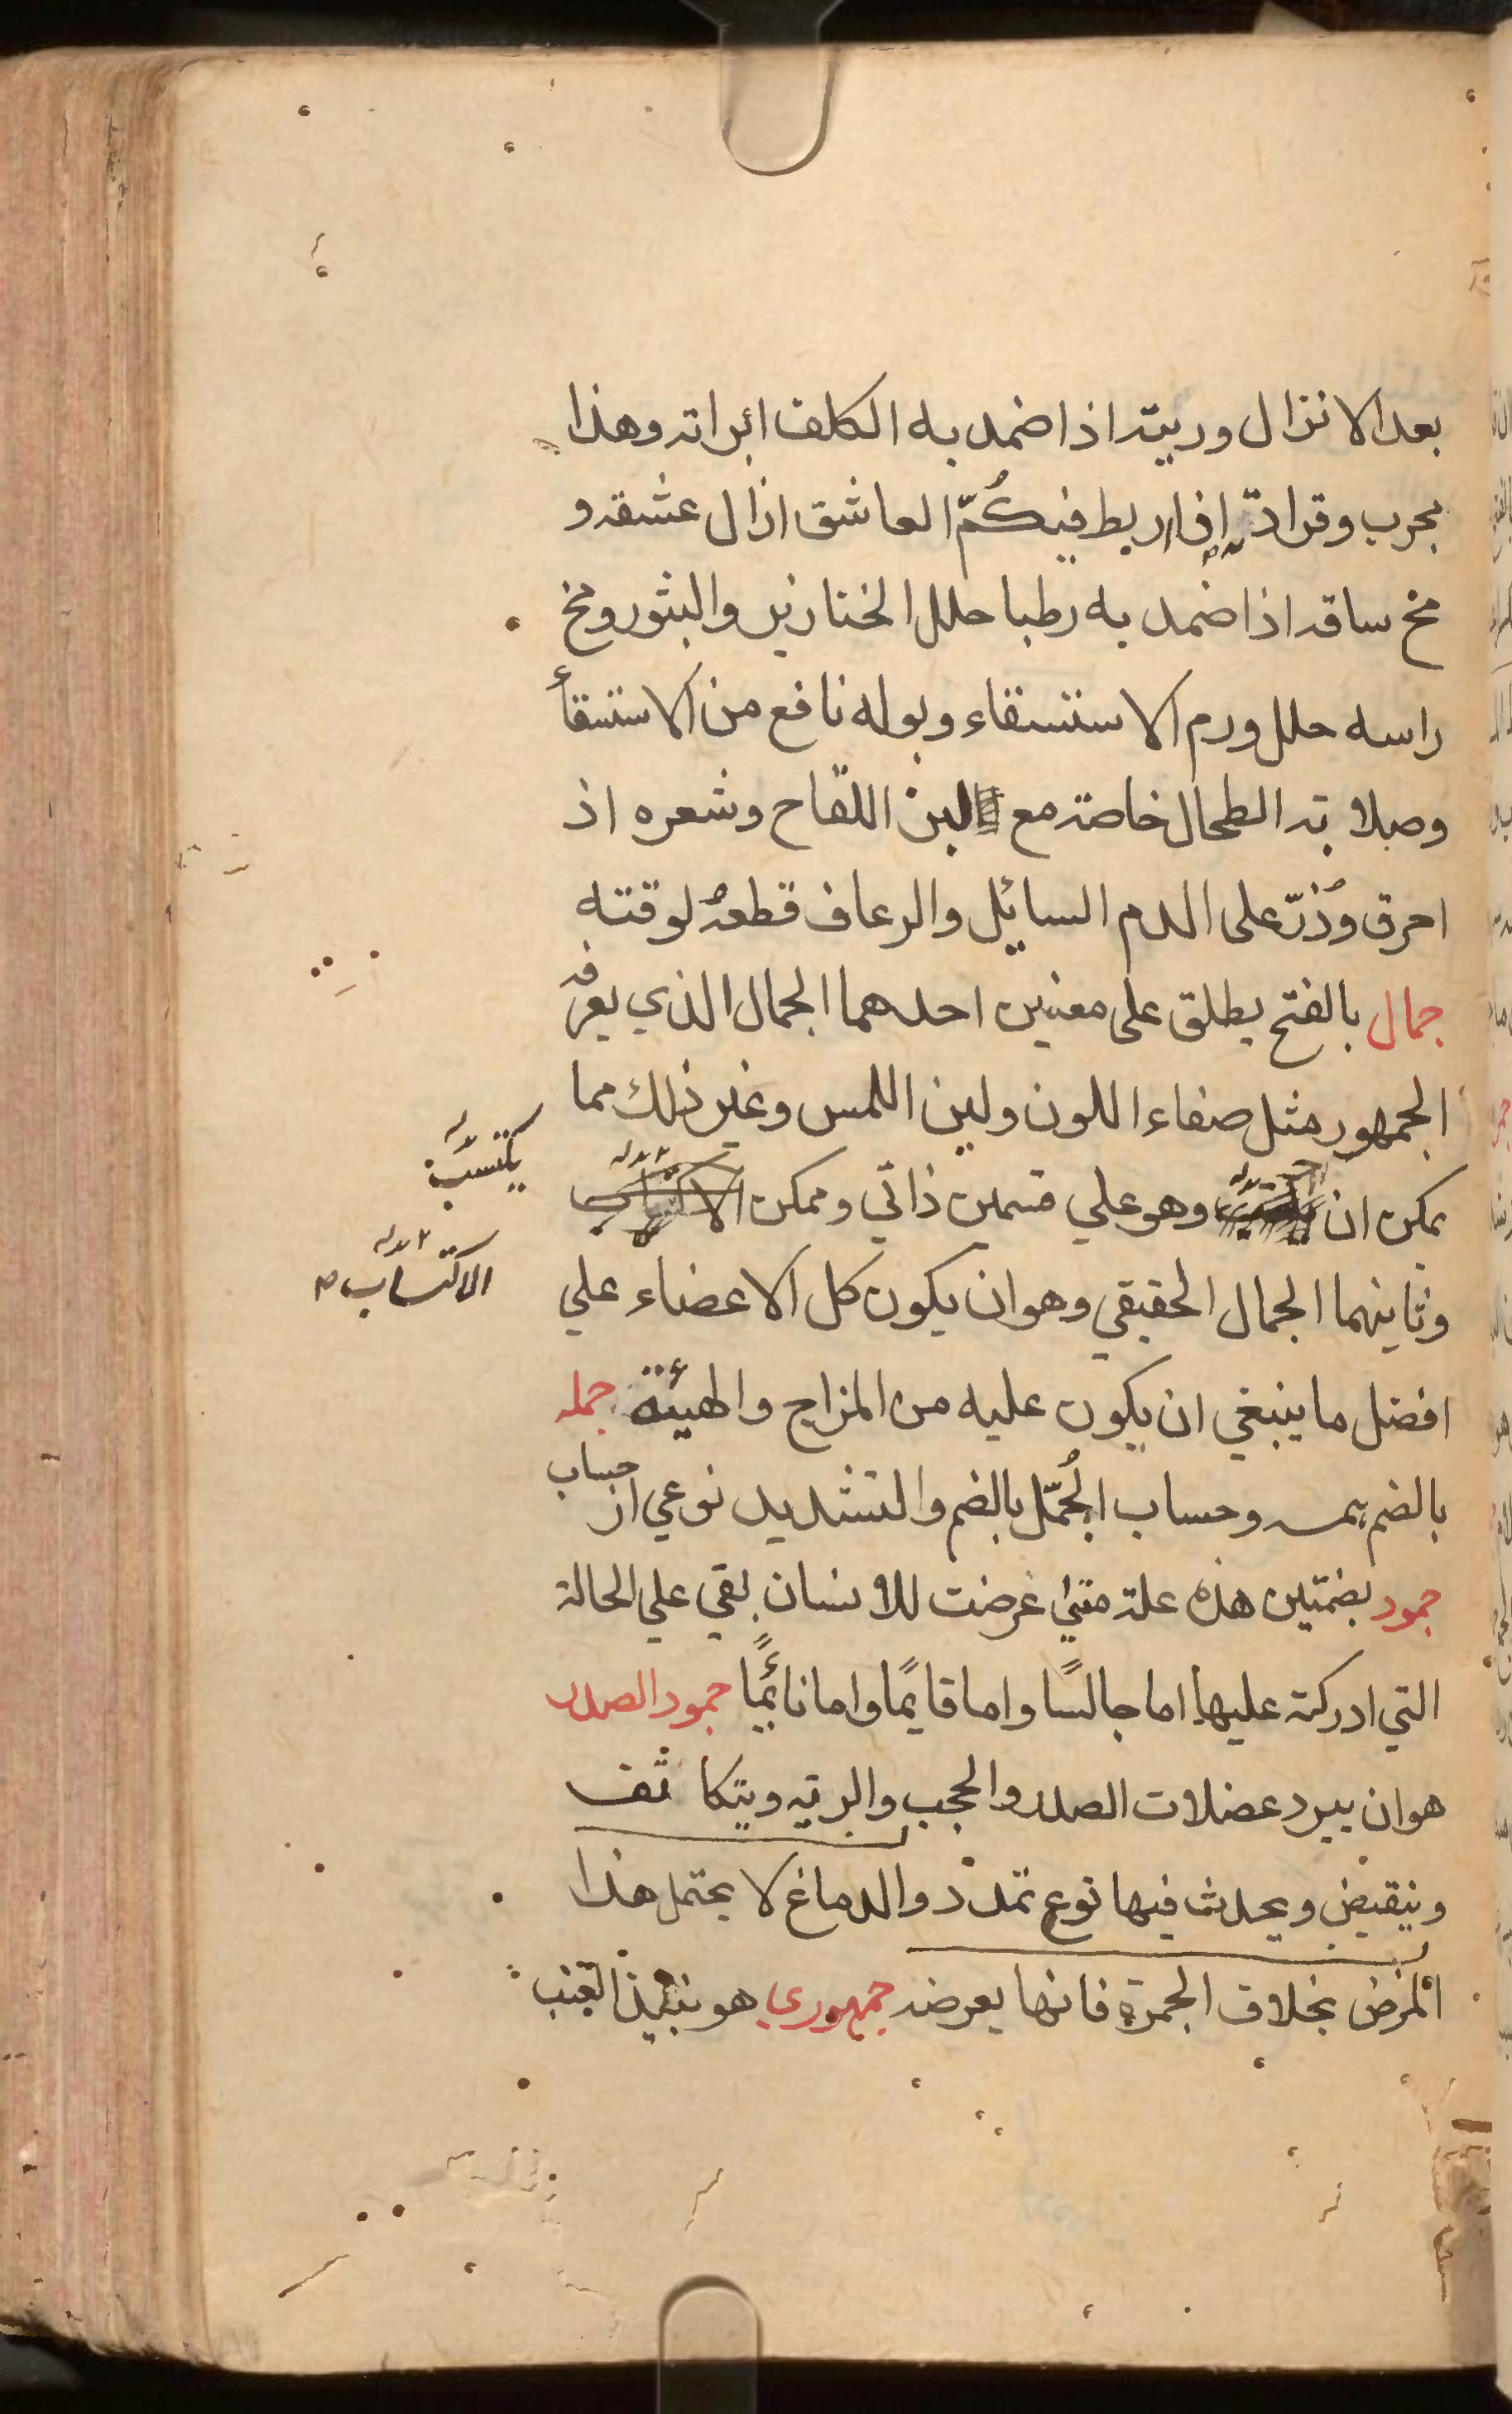 بعد الانزال وريته اذا ضمد به الكلف ابراته وهذا
مجرب وقرادته اذا ربط في كُمّ العاشق ازال عشقه و
مخ ساقه اذا ضمد به رطبا حلل الخنازير والبثور ومخ
راسه حلل ورم الاستسقاء وبوله نافع من الاستسقأ
وصلابة الطحال خاصة مع لبن اللقاح وشعره اذ
احرق وذُرّ على الدم السايل والرعاف قطعهُ لوقته
جمال بالفتح يطلق على معنيين احدهما الجمال الذي يعرفه
الجمهور مثل صفاء اللون ولين اللمس وغير ذلك مما
يمكن ان وهو علي قسمين ذاتي وممكن الاكتساب
يكتسب
الاكتساب
وثانيهما الجمال الحقيقي وهو ان يكون كل الاعضاء علي
افضل ما ينبغي ان يكون عليه من المزاج والهيئة جمله
بالضم همه وحساب الجُمّل بالضم والتشديد نوعي از حساب
جمود بضمتين هذه علة متي عرضت للانسان بقي علي الحالة
التي ادركته عليها اما جالسًا واما قايمًا واما نائمًا جمود الصدر
هو ان يبرد عضلات الصدر والحجب والرية ويتكاثف
وينقبض ويحدث فيها نوع تمدد والدماغ لا يحتمل هذا
المرض بخلاف الجمرة فانها يعرضه جمهوري هو نبيذ العنب